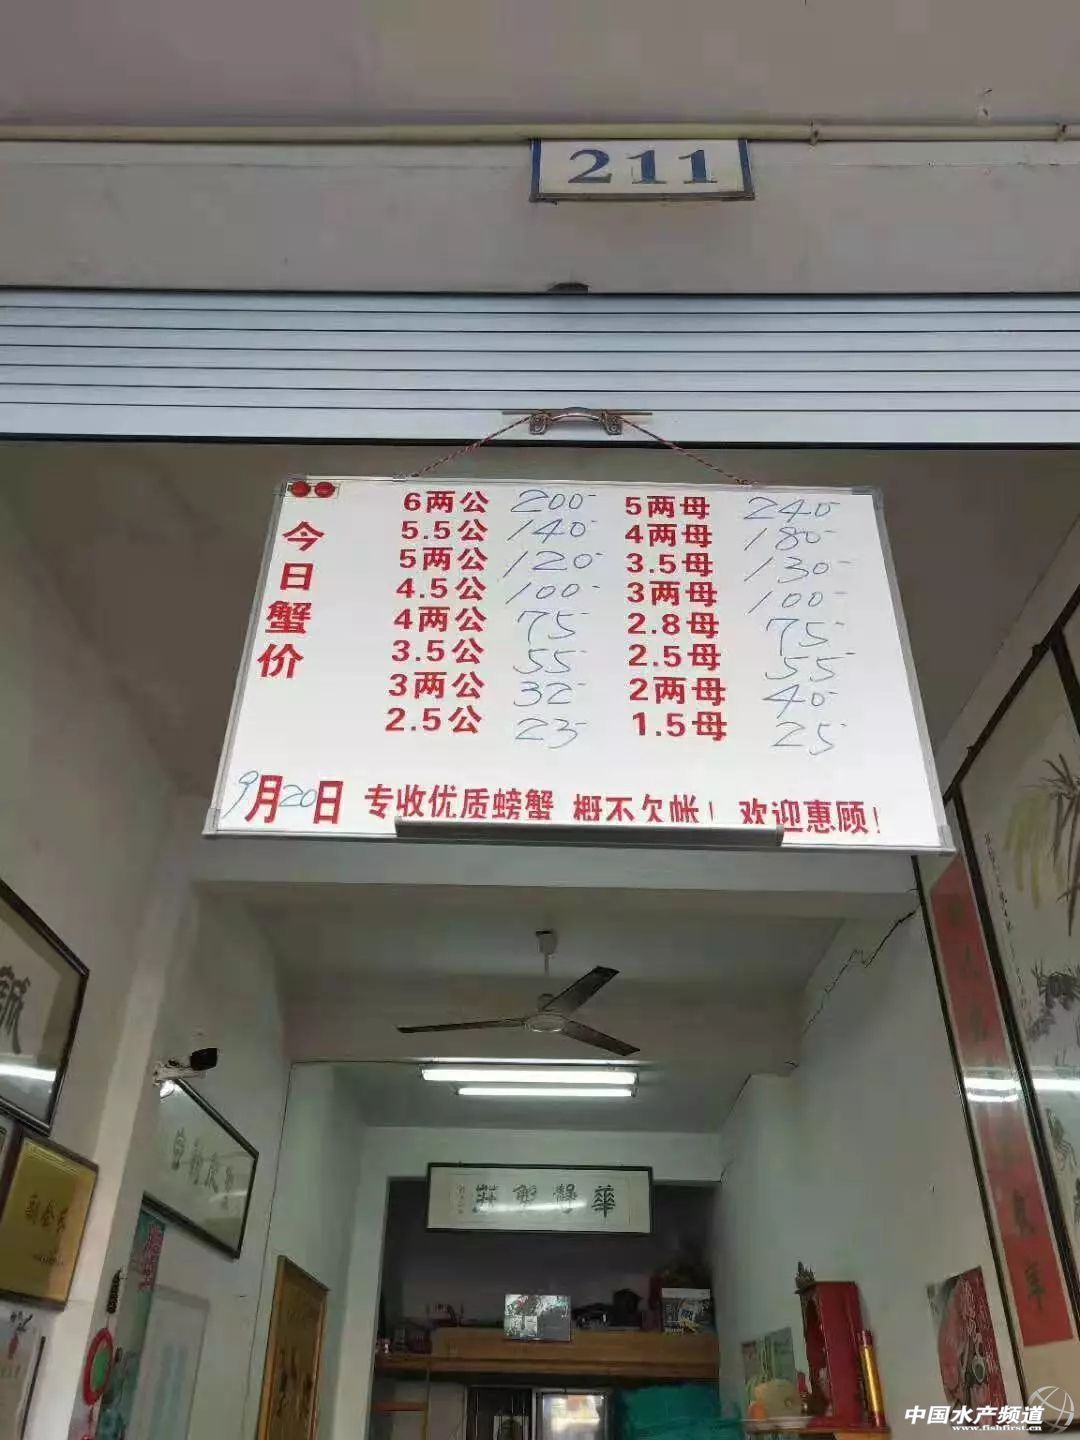 211
今日蟹价
6两公 200 5两母 240
5.5公 140 4两母 180
5两公 120 3.5母 130
4.5公 100 3两母 100
4两公 75 2.8母 75
3.5公 55 2.5母 55
3两公 32 2两母 40
2.5公 23 1.5母 25
9月20日 专收优质螃蟹 概不欠帐！欢迎惠顾！
誠
中国水产频道
www.fishfirst.cn